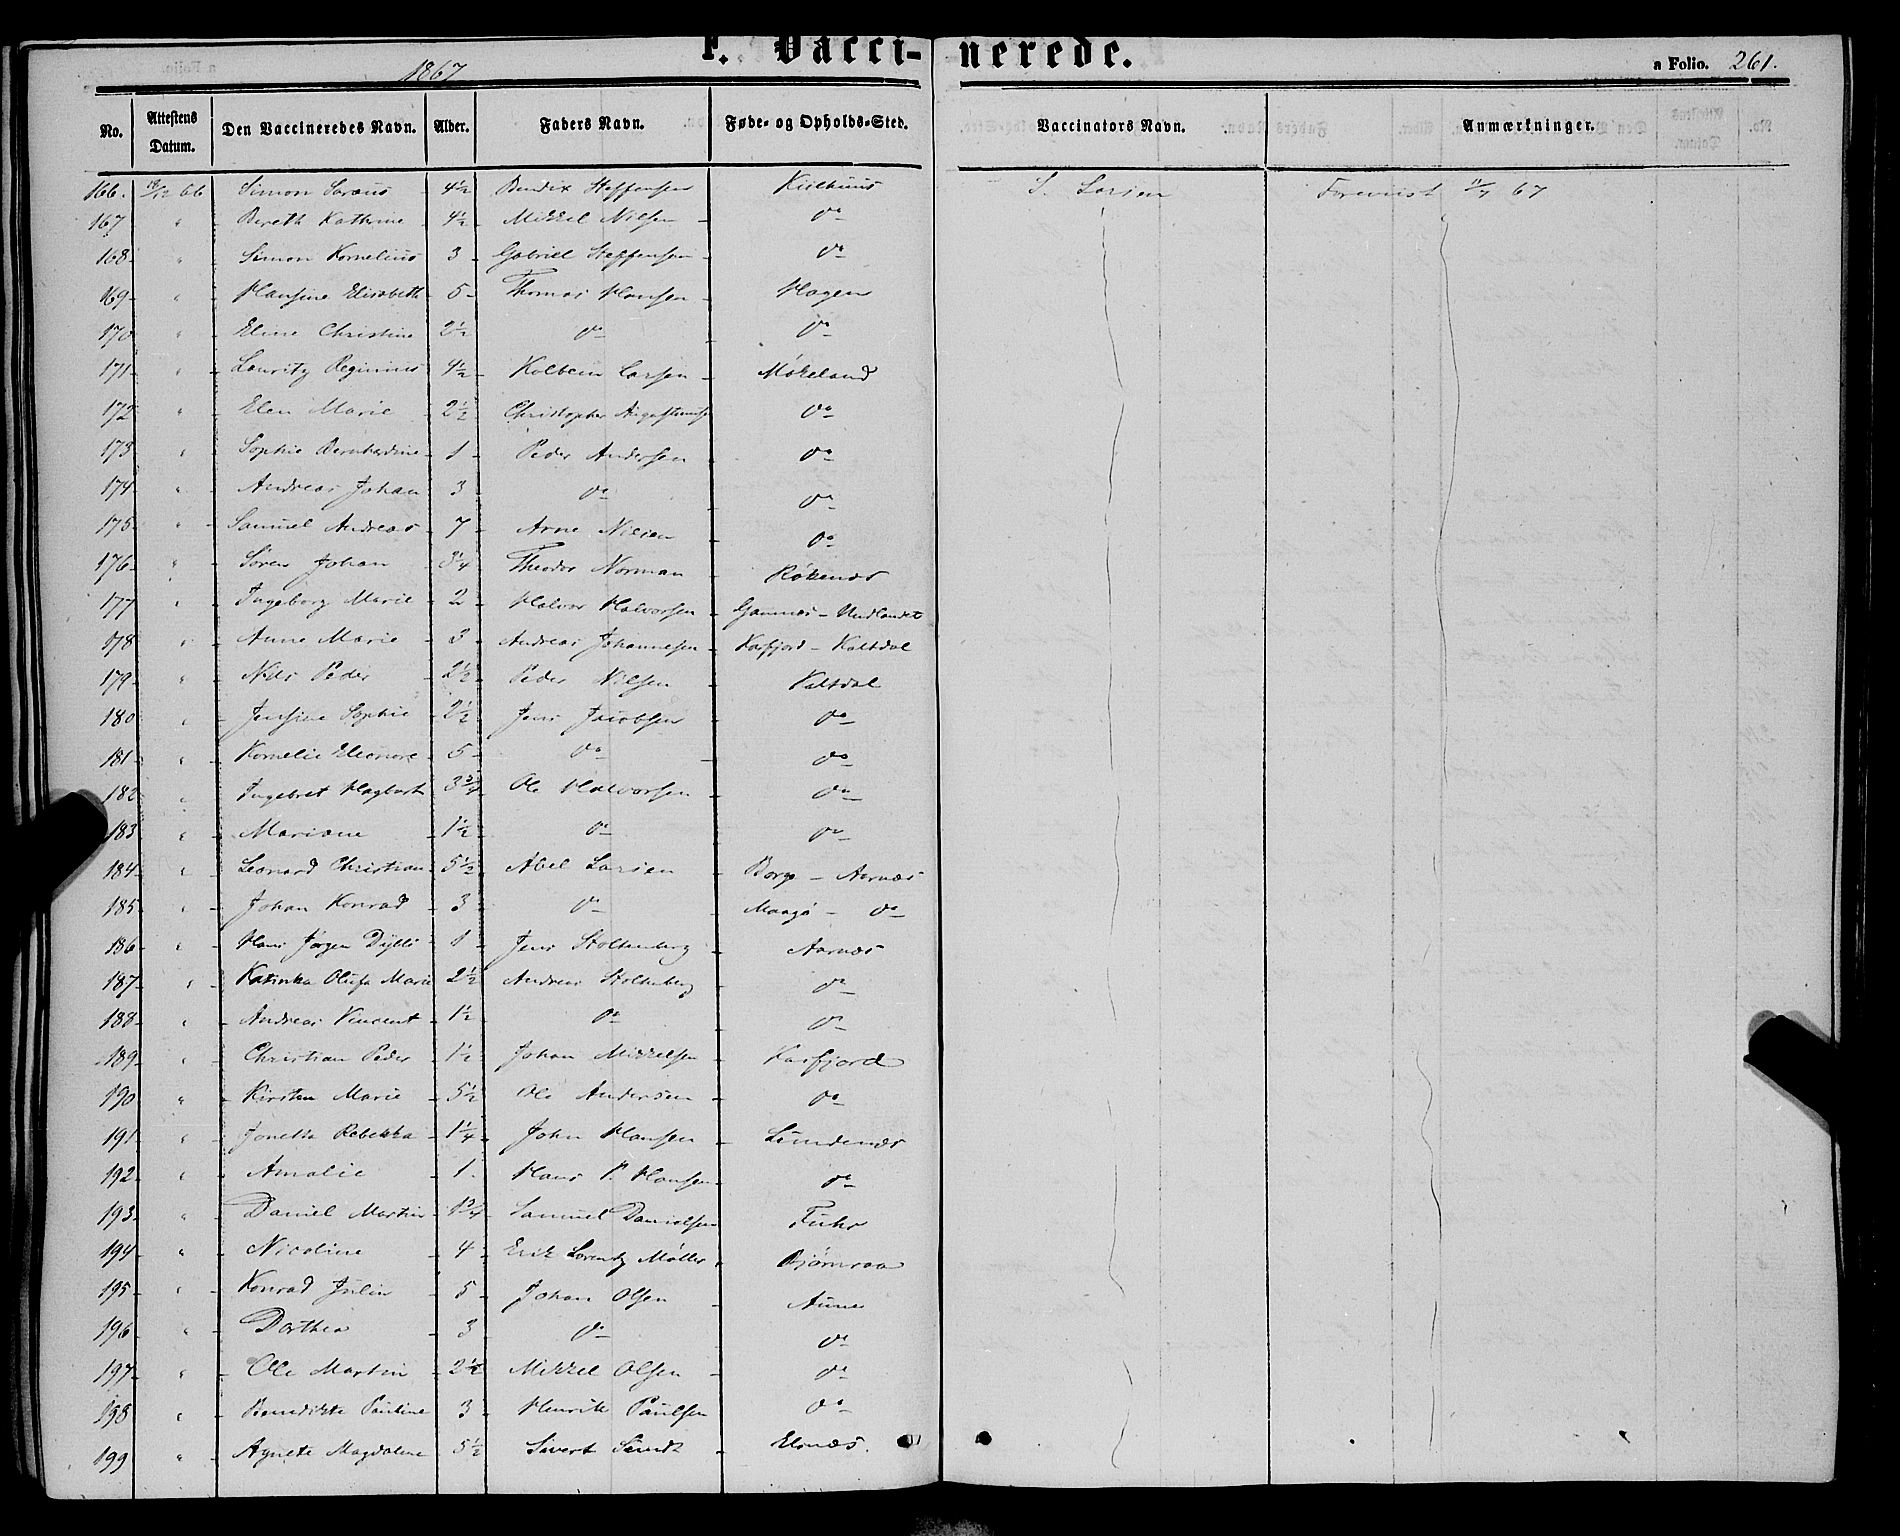 F. Vacci-nerede.
1867
a Folio. 261.
No. Attestens Datum. Den Vaccineredes Navn. Alder. Faders Navn. Føde- og Opholds-Sted. Vaccinators Navn. Anmærkninger.
166. 66 Simon 4½ Bendix Steffensen Kilhuus S. Larsen Foreviist 67
167 " Bereth Kathrine 4½ Mikkel Nilsen do
168 " Simon Kornelius 3 Gabriel Steffensen do
169 " Hansine Elisabeth 5 Thomas Hansen Hagen
170 " Eline Christine 2½ do do
171 " Lauritz Reginius 4½ Kolbein Larsen Møkeland
172 " Elen Marie 2½ Christopher do
173 " Sophie Bernhardine 1 Peder Andersen do
174 " Andreas Johan 3 do do
175 " Samuel Andreas 7 Arne Nilsen do
176 " Søren Johan 3¼ Theodor Norman Røkenæs
177 " Ingeborg Marie 2 Halvor Halvorsen Gamnæs - Undlandet
178 " Anne Marie 3 Andreas Johannesen Kasfjord - Kaltdal
179 " Nils Peder 2½ Peder Nilsen Kaltdal
180 " Jensine Sophie 2½ Jens Jacobsen do
181 " Kornelie Eleonore 5 do do
182 " Ingebret Hagbart 3¾ Ole Halvorsen do
183 " Mariane 1½ do do
184 " Leonard Christian 5½ Abel Larsen Borge - Aarnæs
185 " Johan Konrad 3 do - do
186 " Hans Jørgen 1 Jens Stoltenberg Aarnæs
187 " Katinka Olufa Marie 2½ Andreas Stoltenberg do
188 " Andreas Vincent 1½ do do
189 " Christian Peder 1½ Johan Mikkelsen Kasfjord
190 " Kirsten Marie 5½ Ole Andersen do
191 " Jonetta Rebekka 1¼ John Hansen Lundenæs
192 " Amalie 1 Hans P. Hansen do
193 " Daniel Martin 1¾ Samuel Danielsen
194 " Nicoline 4 Erik Lorentz Møller Bjørnraa
195 " Konrad Julin 5 Johan Olsen Aune
196 " Dorthea 3 do do
197 " Ole Martin 2½ Mikkel Olsen do
198 " Benedikte Pauline 3 Henrik Paulsen do
199 " Agnete Magdalene 5½ Sivert Elsnæs.